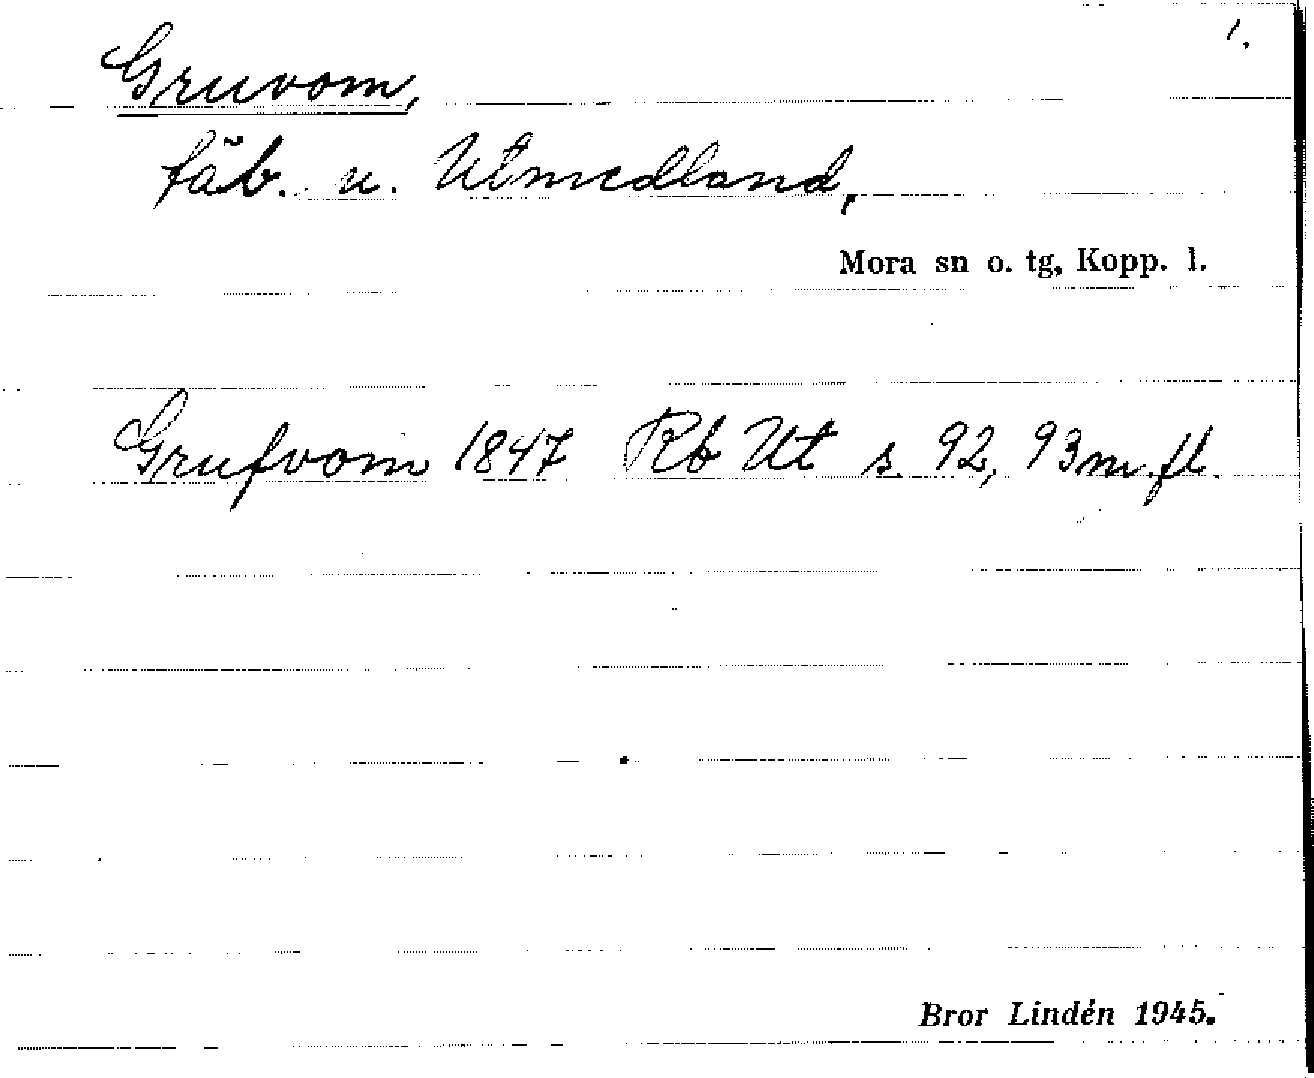 1.
Gruvom,
fäb. u. Utmedland,
Mora sn o. tg, Kopp. l.
Grufvom 1847 Rb Ut s. 92, 93 m. fl.
Bror Lindén 1945.